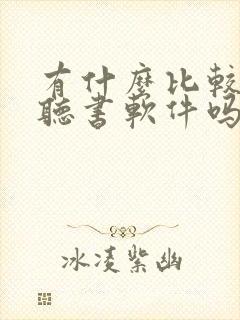 有什麼比較
聽書軟件吗
冰凌紫幽